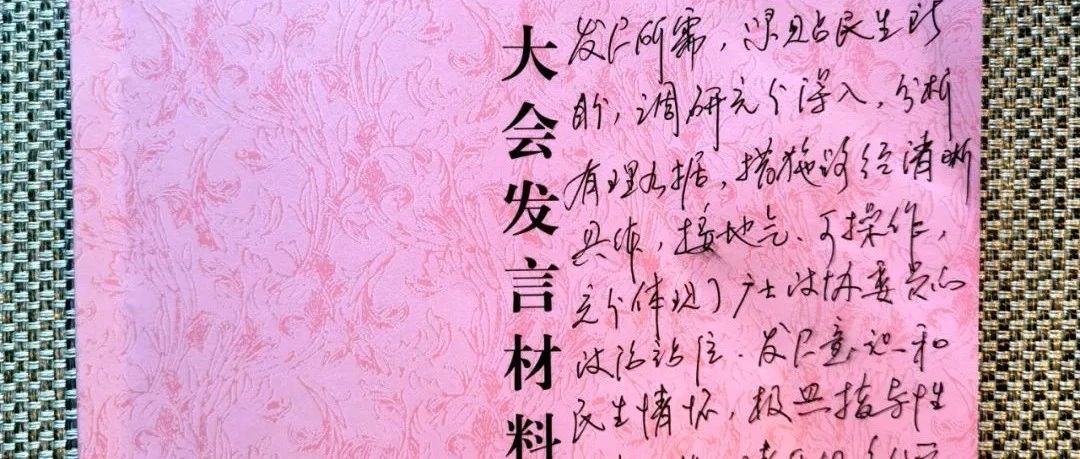 大会发言材料
发展所需,除且占民生所
盼,调研充分深入,分析
有理有据,措施路径清晰
具体,接地气、可操作,
充分体现了广大政协委员的
政治站位、发展意识和
民生情怀,极具指导性